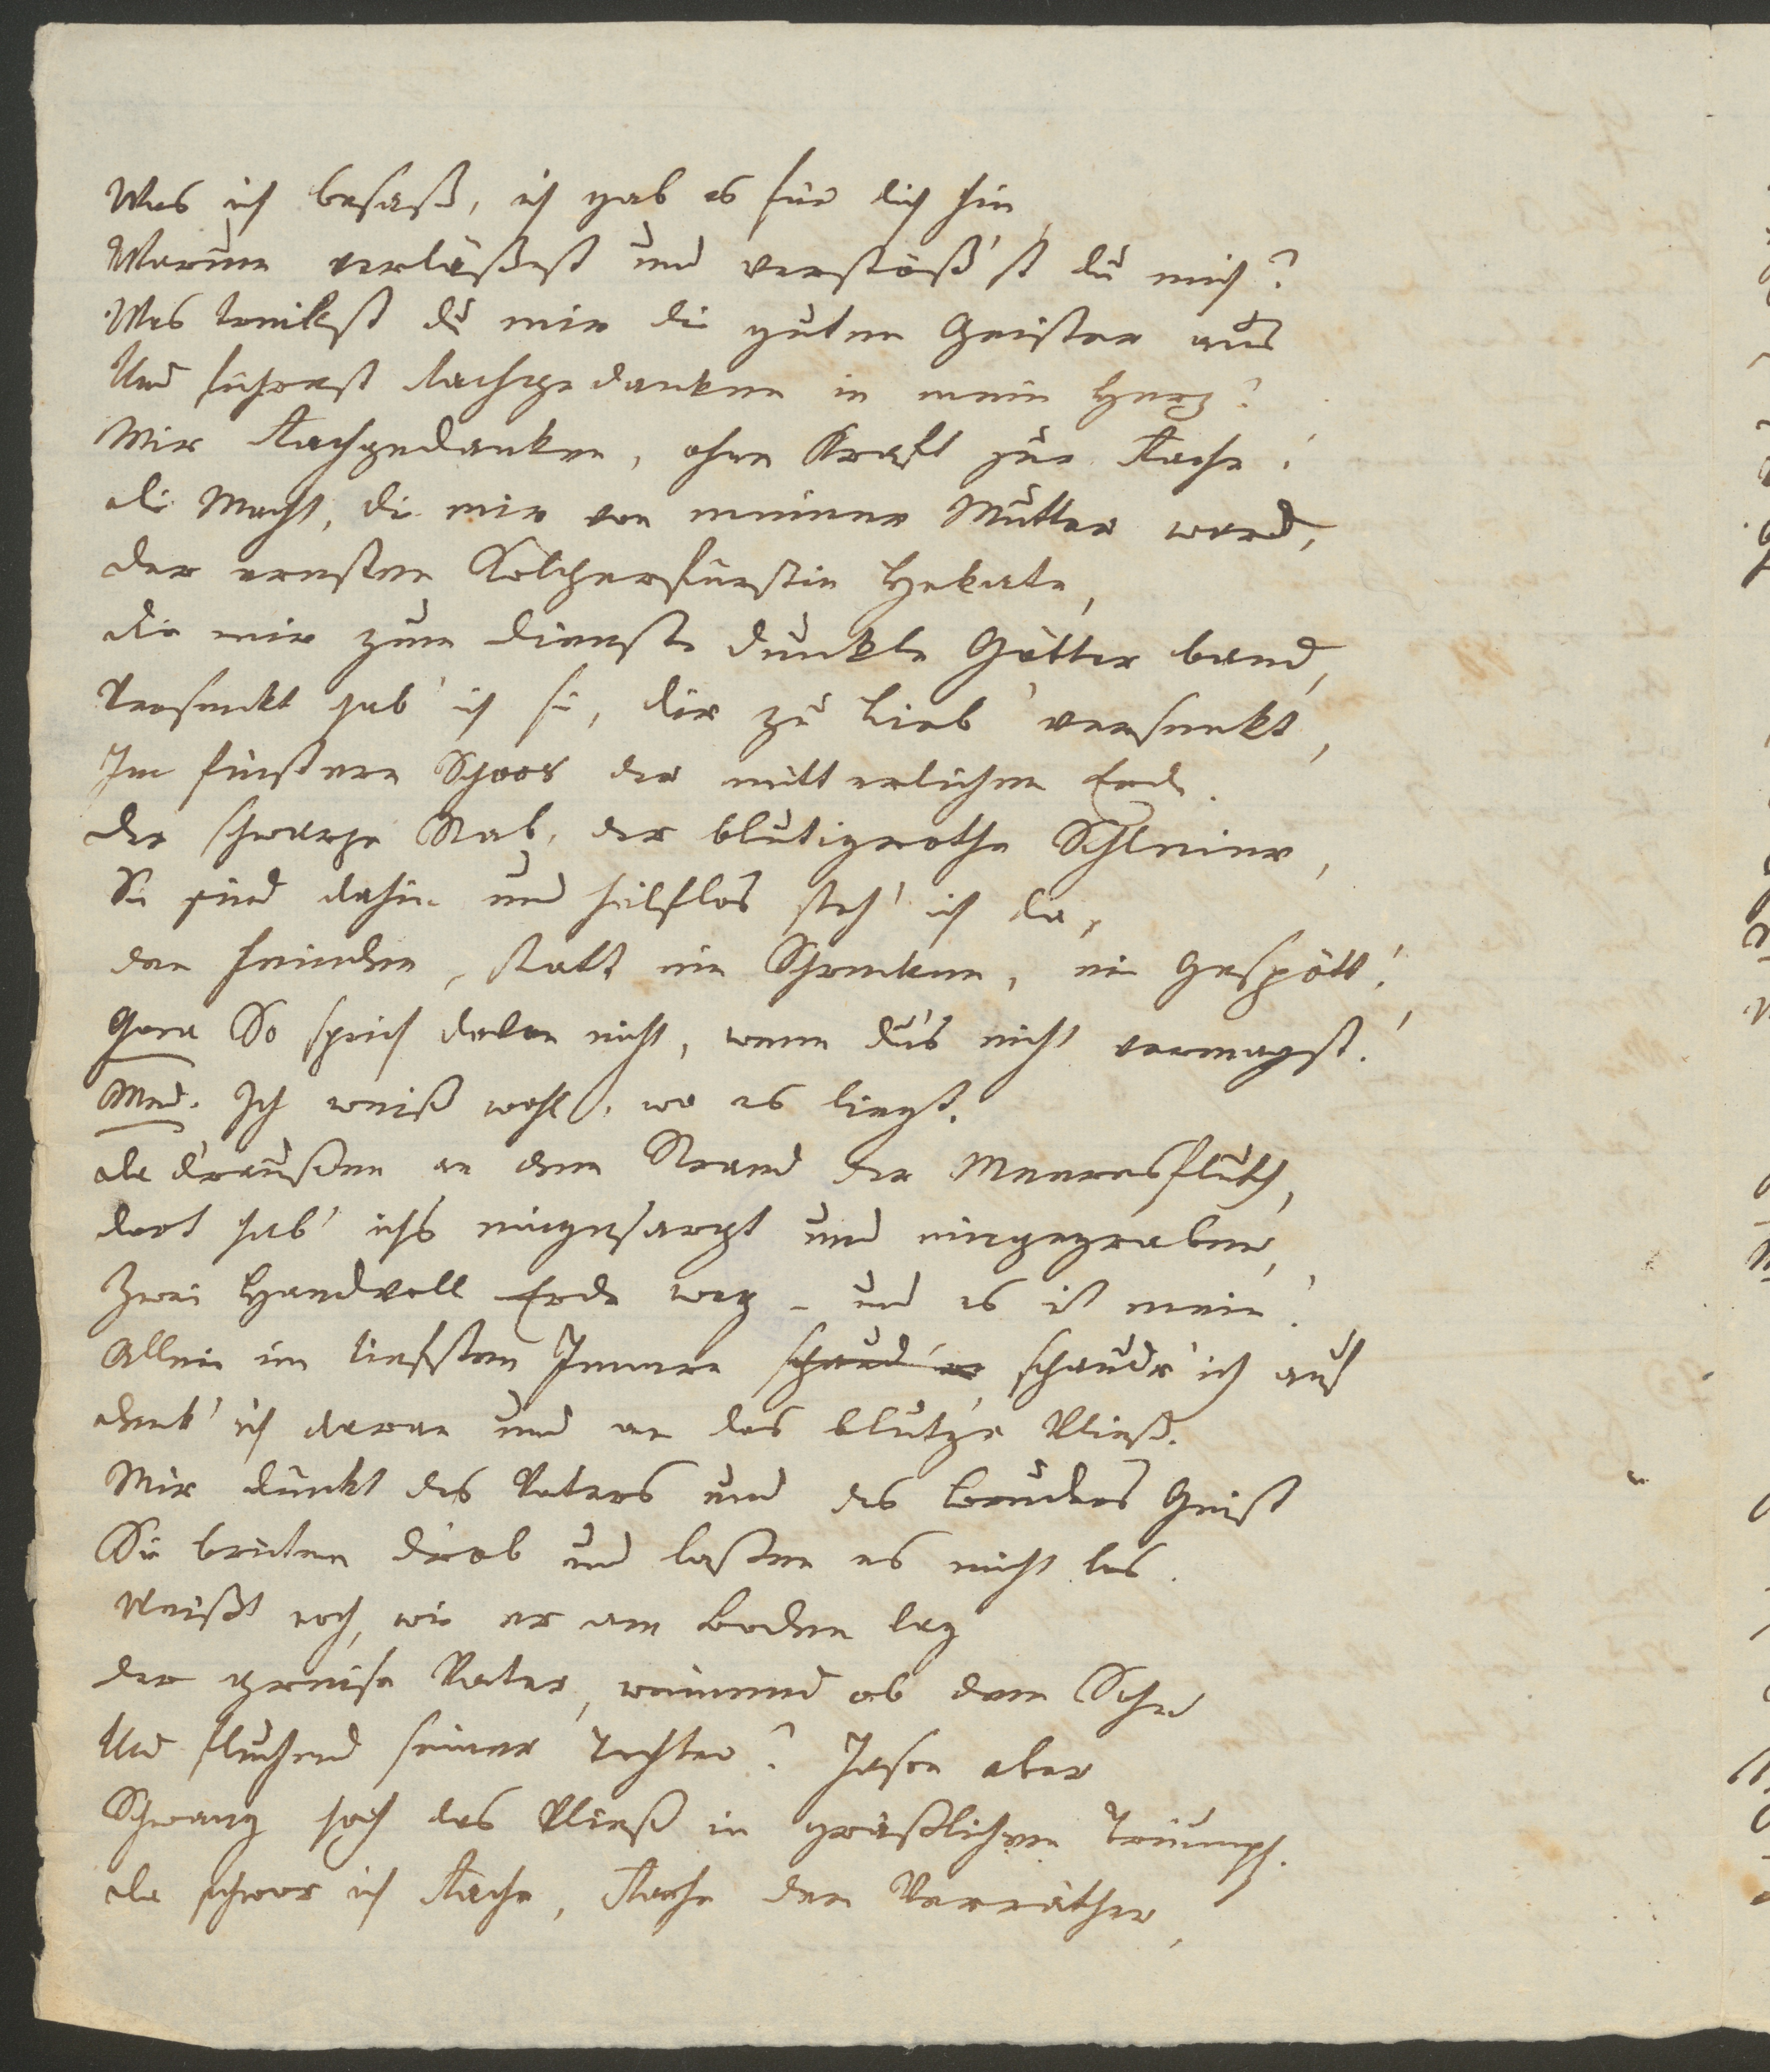 Was ich besaß, ich gab es für dich hin,
Warum verläßest und verstöß'st du mich?
Was treibest du mir die guten Geister aus
Und führest Rachgedanken in mein Herz?
Mir Rachgedanken, ohne Kraft zur Rache!
die Macht, die mir von meiner Mutter ward,
der ernsten Kolcherfürstin Hekate,
die mir zum Dienste dunkle Götter band,
Versenkt hab' ich sie, dir zu Lieb' versenkt,
Im finstern Schoos der mütterlichen Erde.
der schwarze Stab, der blutigrothe Schleier,
Sie sind dahin und hülflos steh' ich da,
den Feinden, statt ein Schrecken, ein Gespött!
Gora So sprich davon nicht, wenn du's nicht vermagst!
Med. Ich weiß wohl, wo es liegt.
da draußen an dem Strand der Meeresfluth,
dort hab' ichs eingesargt und eingegraben,
Zwei Handvoll Erde weg - und es ist mein!
Allein im tiefsten Innern schaud'r schaudr' ich auf
denk' ich daran und an das blut'ge Vließ.
Mir dünkt des Vaters und des Bruders Geist
Sie brüten d'rob und lassen es nicht los.
Weißt noch, wie er am Boden lag
der greise Vater, weinend ob dem Sohn
Und fluchend seiner Tochter? Jason aber
Schwang hoch das Vließ in gräßlichem Triumph.
da schwor ich Rache, Rache dem Verräther,